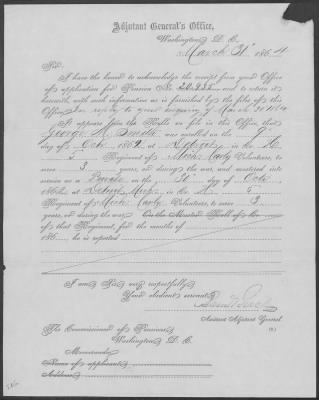 Adjutant General's Office,
Washington, D. C.
March 31st 1864
Sir:
I have the honor to acknowledge the receipt from your Office
of application for Pension No. and to return it
herewith, with such information as is furnished by the files of this
Office
It appears from the Rolls on file in this Office, that
George H. was enrolled on the 9th
day of Oct 1862, at in the
5 Regiment of Mich Cavly Volunteers, to
serve 3 years, or during the war, and mustered into
service as a Private on the 31 day of Octo
1862, at Detroit Mich, in the 5
Regiment of Mich Cavly Volunteers, to serve 3
years, or during the war. On the Muster Roll of Co.
of that Regiment, for the months of
186 , he is reported
I am, Sir, very respectfully,
Your obedient servant,
Assistant Adjutant General.
The Commissioner of Pensions,
Washington, D. C.
Memoranda:
Name of applicant,
Address,